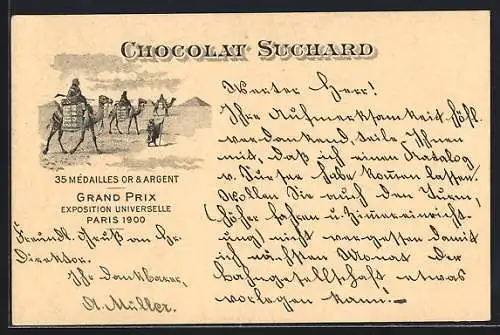 CHOCOLAT SUCHARD
35 MÉDAILLES OR & ARGENT
GRAND PRIX
EXPOSITION UNIVERSELLE
PARIS 1900
Werter Herr!
Ihre Aufmerksamkeit höfl.
verdankend, teile Ihnen
mit, daß ich einen Katalog
v. Sursee habe kommen lassen.
Wollen Sie auch den Turm,
(höher fahren u Zimmereinricht-
ung) nicht vergessen damit
ich nächsten Monat der
Bahngesellschaft etwas
vorlegen kann! –
Freundl. Gruß an Hr.
Direktor.
Ihr dankbarer,
A. Müller.